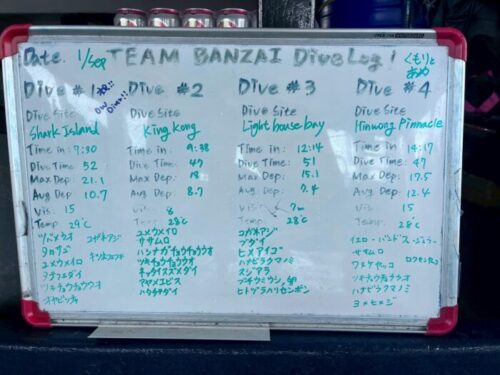 Date. 1/Sep TEAM BANZAI Dive Log!
くもりと
あめ
Dive #1
祝!!
Dive #2
Dive #3
Dive #4
Dive Site
Shark Island
Time in: 7:30
Dive Time 52
Max Dep: 21.1
Avg Dep: 10.7
Vis: 15
Temp 29℃
ツバメウオ
コガネアジ
タカサゴ
ユメウメイロ
ツキチョウチョウウオ
Dive Site
King Kong
Time in: 9:38
Dive Time: 47
Max Dep: 18
Avg Dep: 8.7
Vis: 8
Temp: 28℃
ユメウメイロ
ササムロ
ハシナガチョウチョウウオ
ツキチョウチョウウオ
キックイスズメダイ
アヤメエビス
ハタタテダイ
Dive Site
Light house bay
Time in: 12:14
Dive Time: 51
Max Dep: 15.1
Avg Dep: 7.4
Vis: 7m
Temp: 28℃
コガネアジ
ブダイ
ヒメアイゴ
ハナビラクマノミ
スジアラ
ヒトヅラハリセンボン
Dive Site
Hinwong Pinnacle
Time in: 14:17
Dive Time: 47
Max Dep: 17.5
Avg Dep: 12.4
Vis: 15
Temp: 28℃
ササムロ
ツキチョウチョウウオ
ハナビラクマノミ
ヨメヒメジ